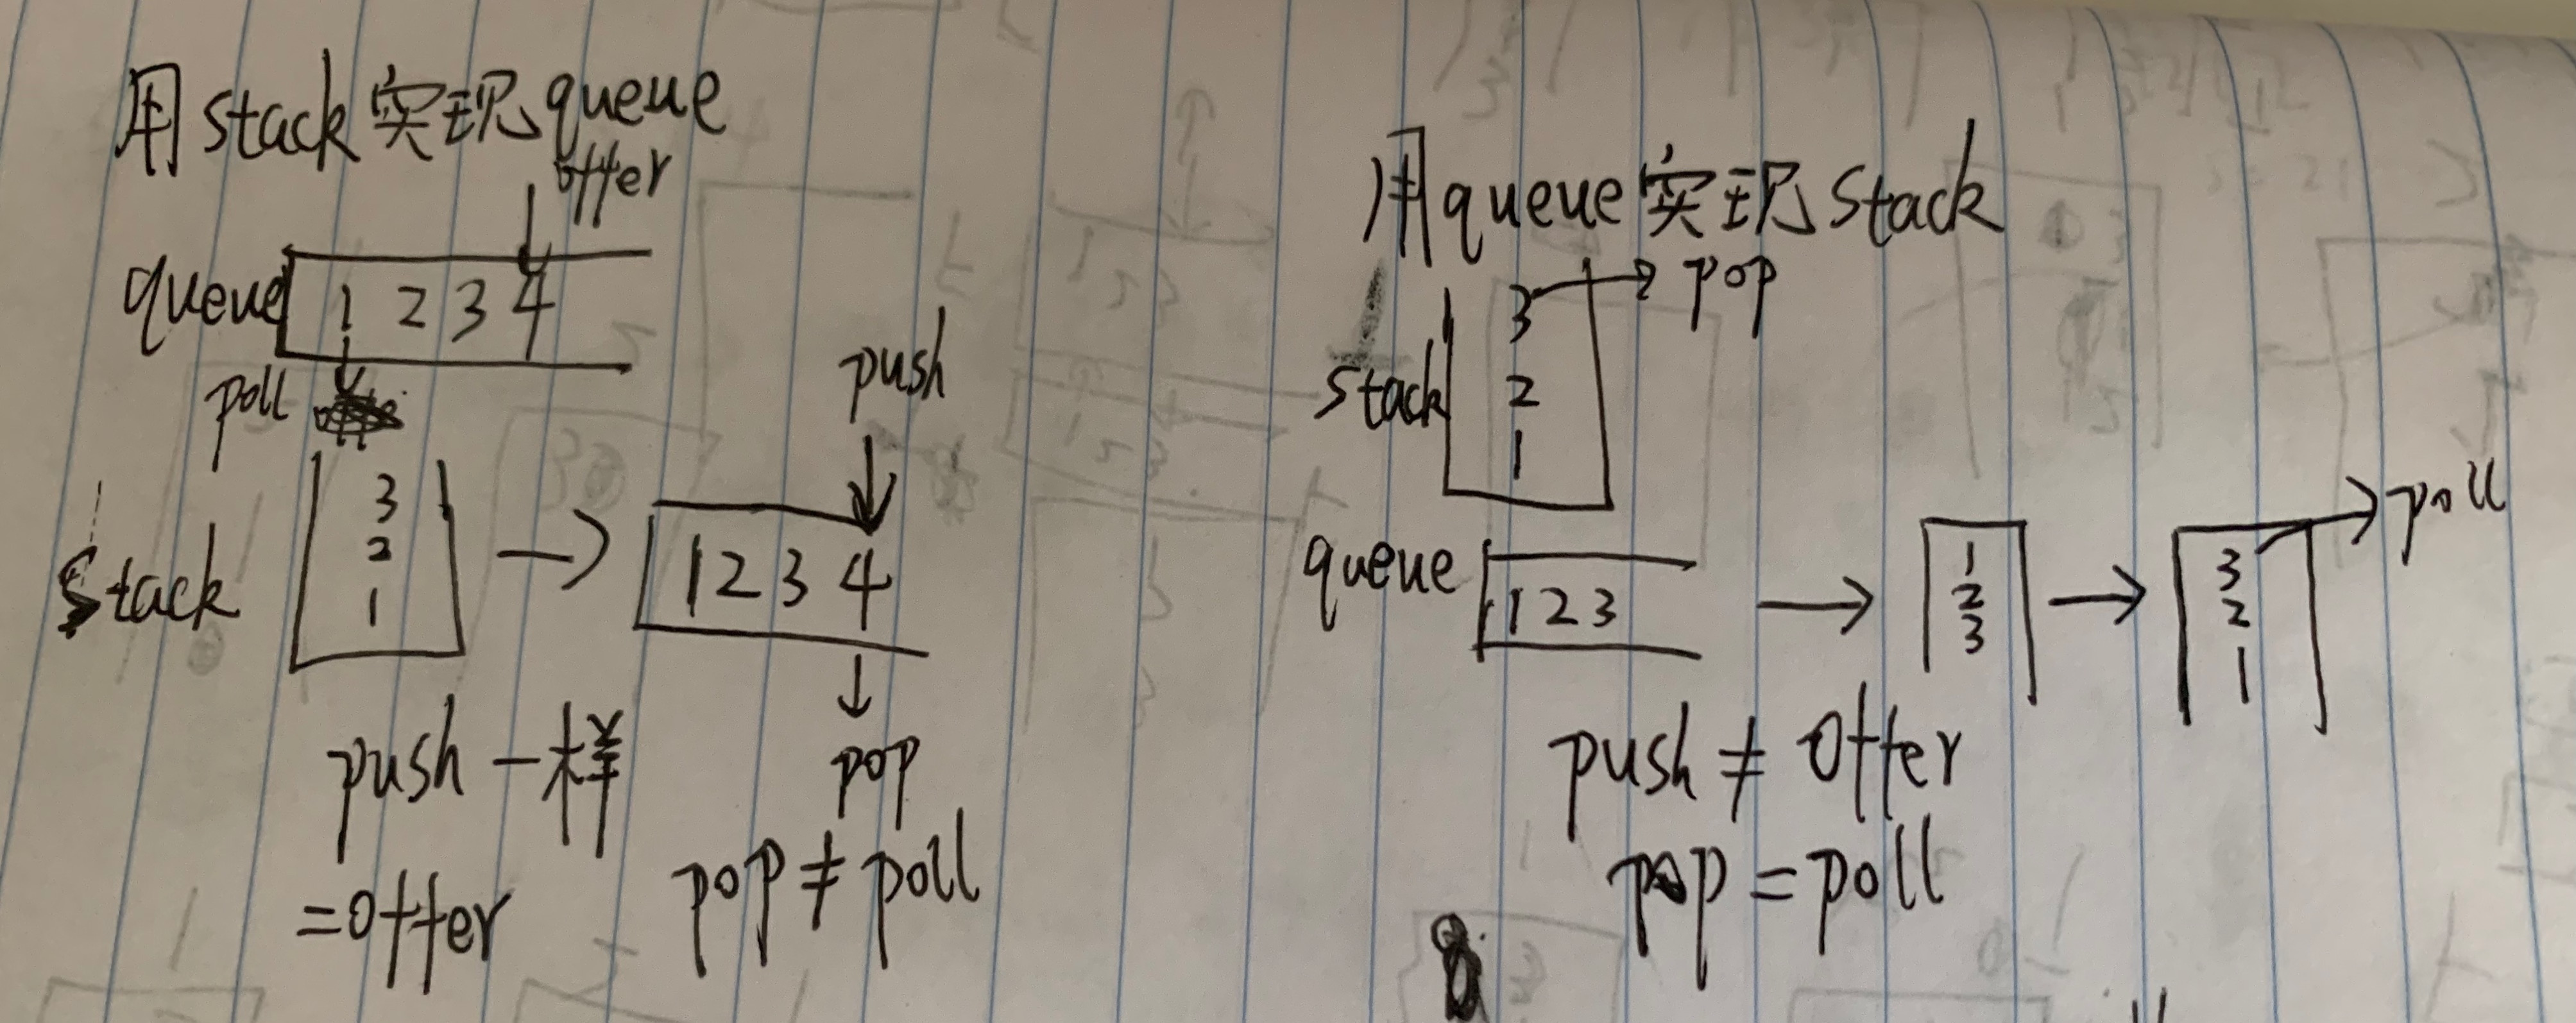 用stack实现queue
offer
queue 1 2 3 4
poll
push
stack
3
2
1
1 2 3 4
pop
push 一样
=offer
pop ≠ poll
用queue实现stack
pop
stack
3
2
1
queue 1 2 3
1
2
3
3
2
1
poll
push ≠ offer
pop = poll